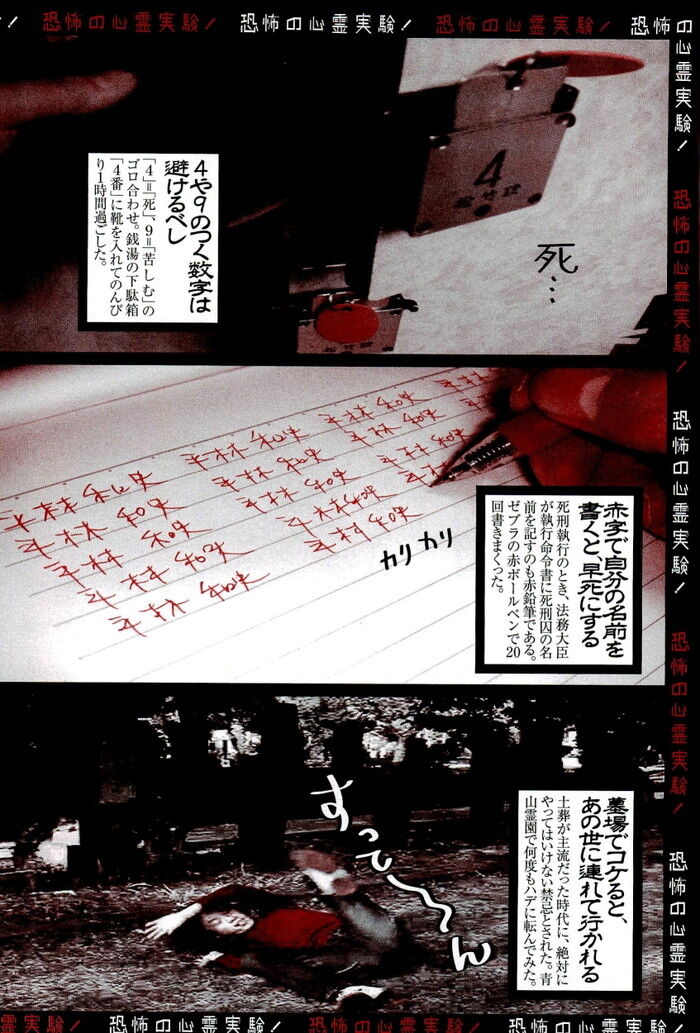 恐怖の心霊実験！
恐怖の心霊実験！
恐怖の心霊実験！
恐怖の心霊実験！
恐怖の心霊実験！
恐怖の心霊実験！
恐怖の心霊実験！
恐怖の心霊実験！
4
死…
4や9のつく数字は
避けるべし
「4」＝「死」、9＝「苦しむ」の
ゴロ合わせ。銭湯の下駄箱
「4番」に靴を入れてのんび
り1時間過ごした。
カリカリ
赤字で自分の名前を
書くと、早死にする
死刑執行のとき、法務大臣
が執行命令書に死刑囚の名
前を記すのも赤鉛筆である。
ゼブラの赤ボールペンで20
回書きまくった。
すってーーん
墓場でコケると、
あの世に連れて行かれる
土葬が主流だった時代に、絶対に
やってはいけない禁忌とされた。青
山霊園で何度もハデに転んでみた。
霊実験！
恐怖の心霊実験！
恐怖の心霊実験！
恐怖の心霊実験！